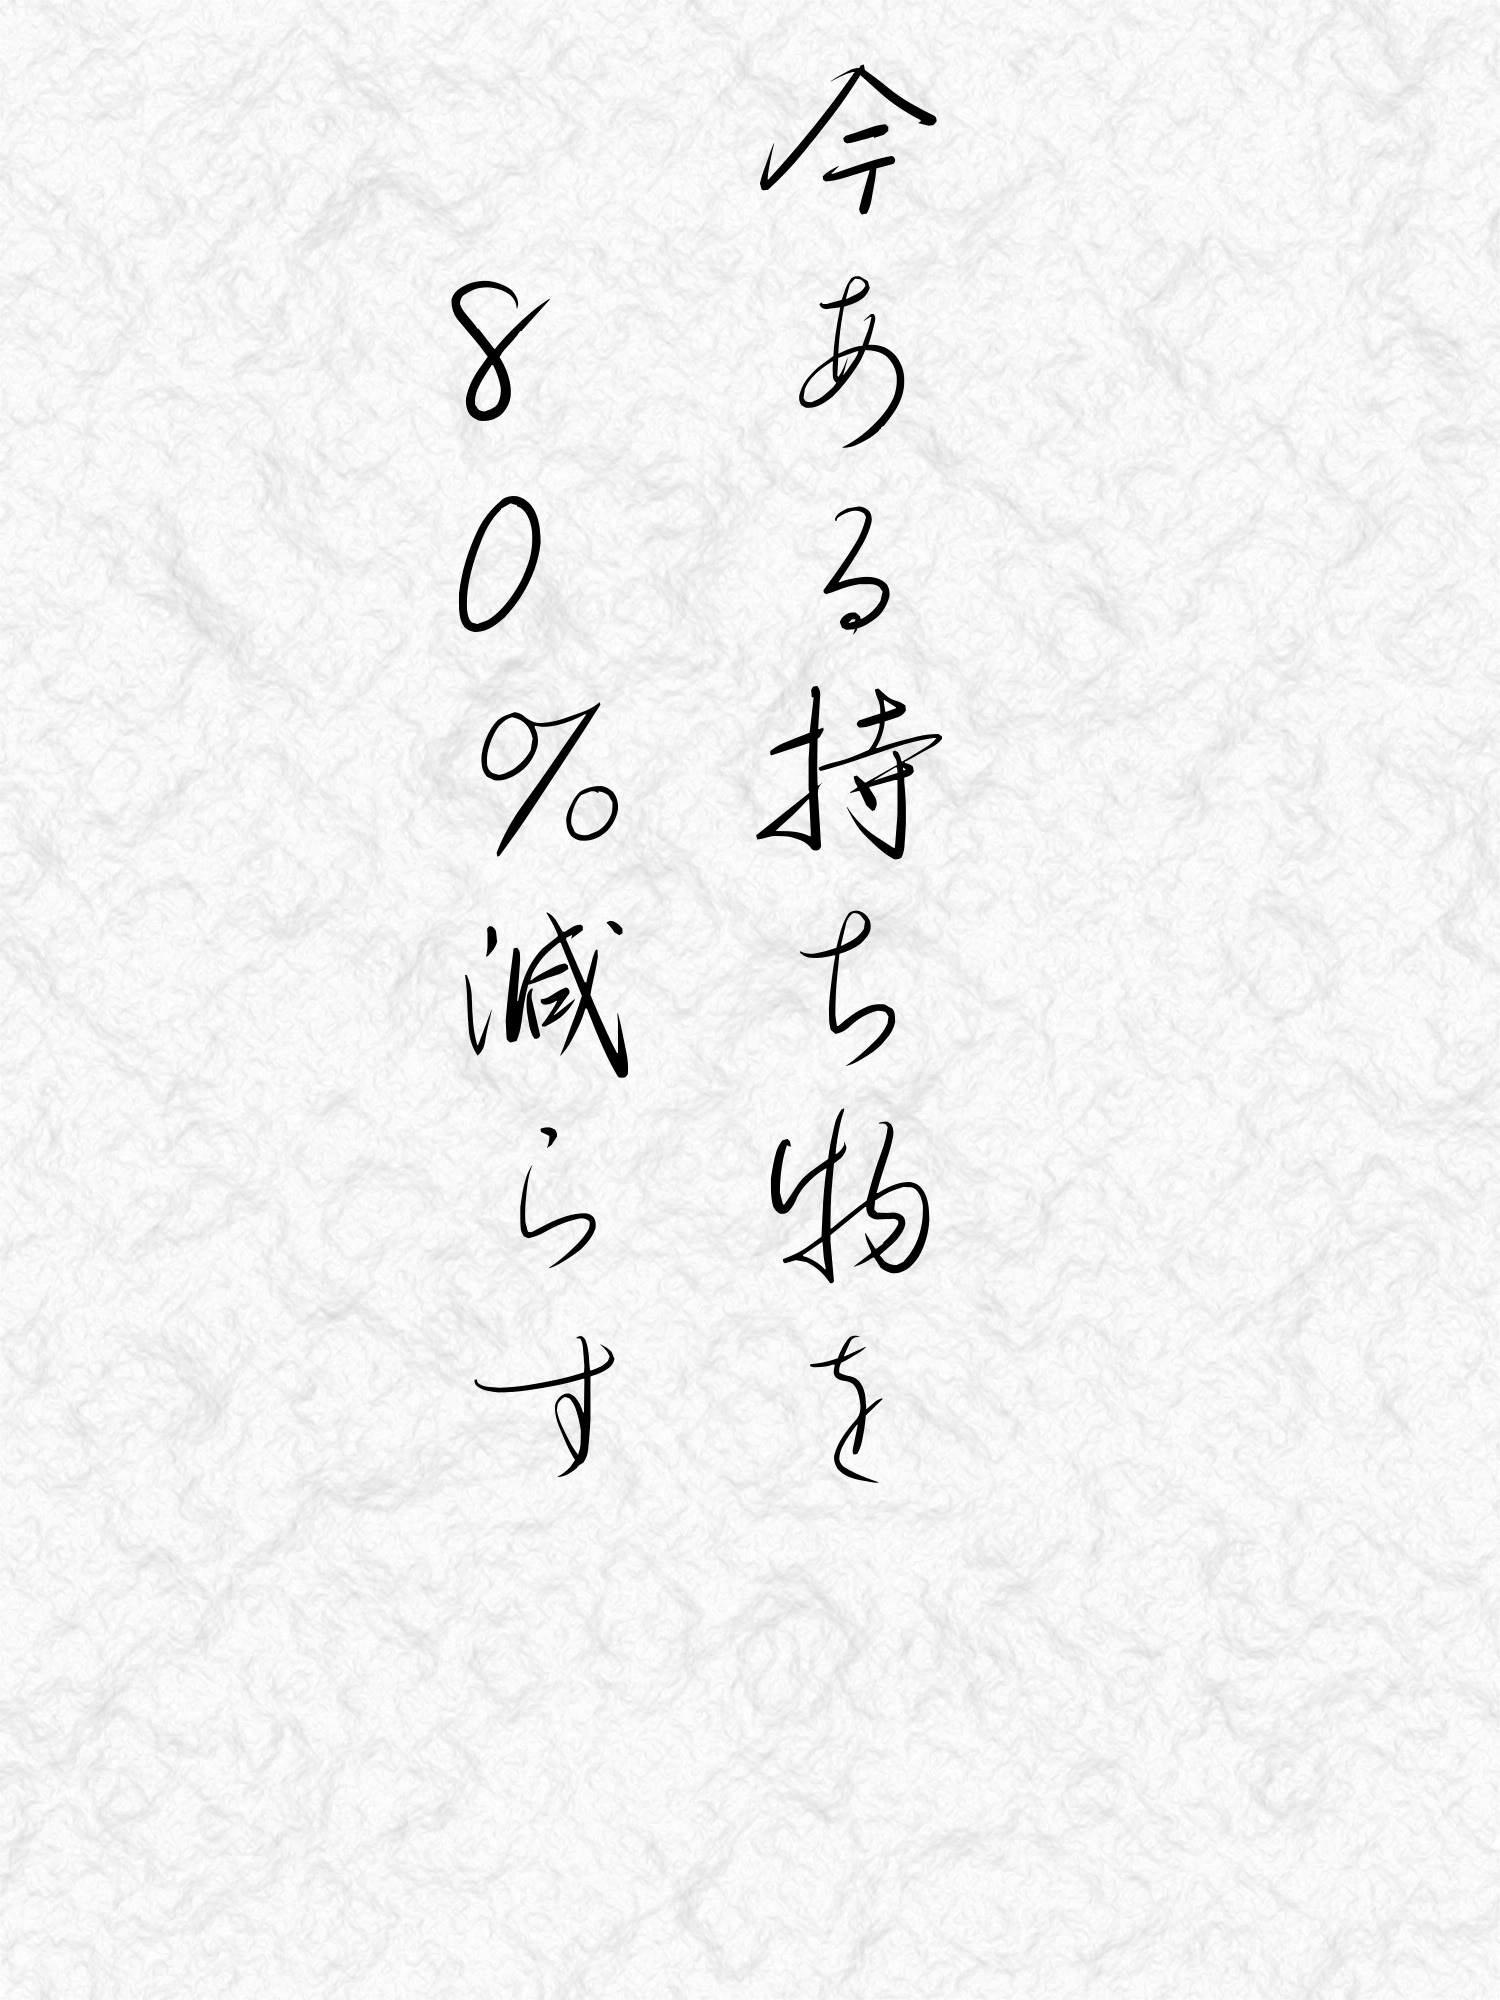 今ある持ち物を
80%減らす